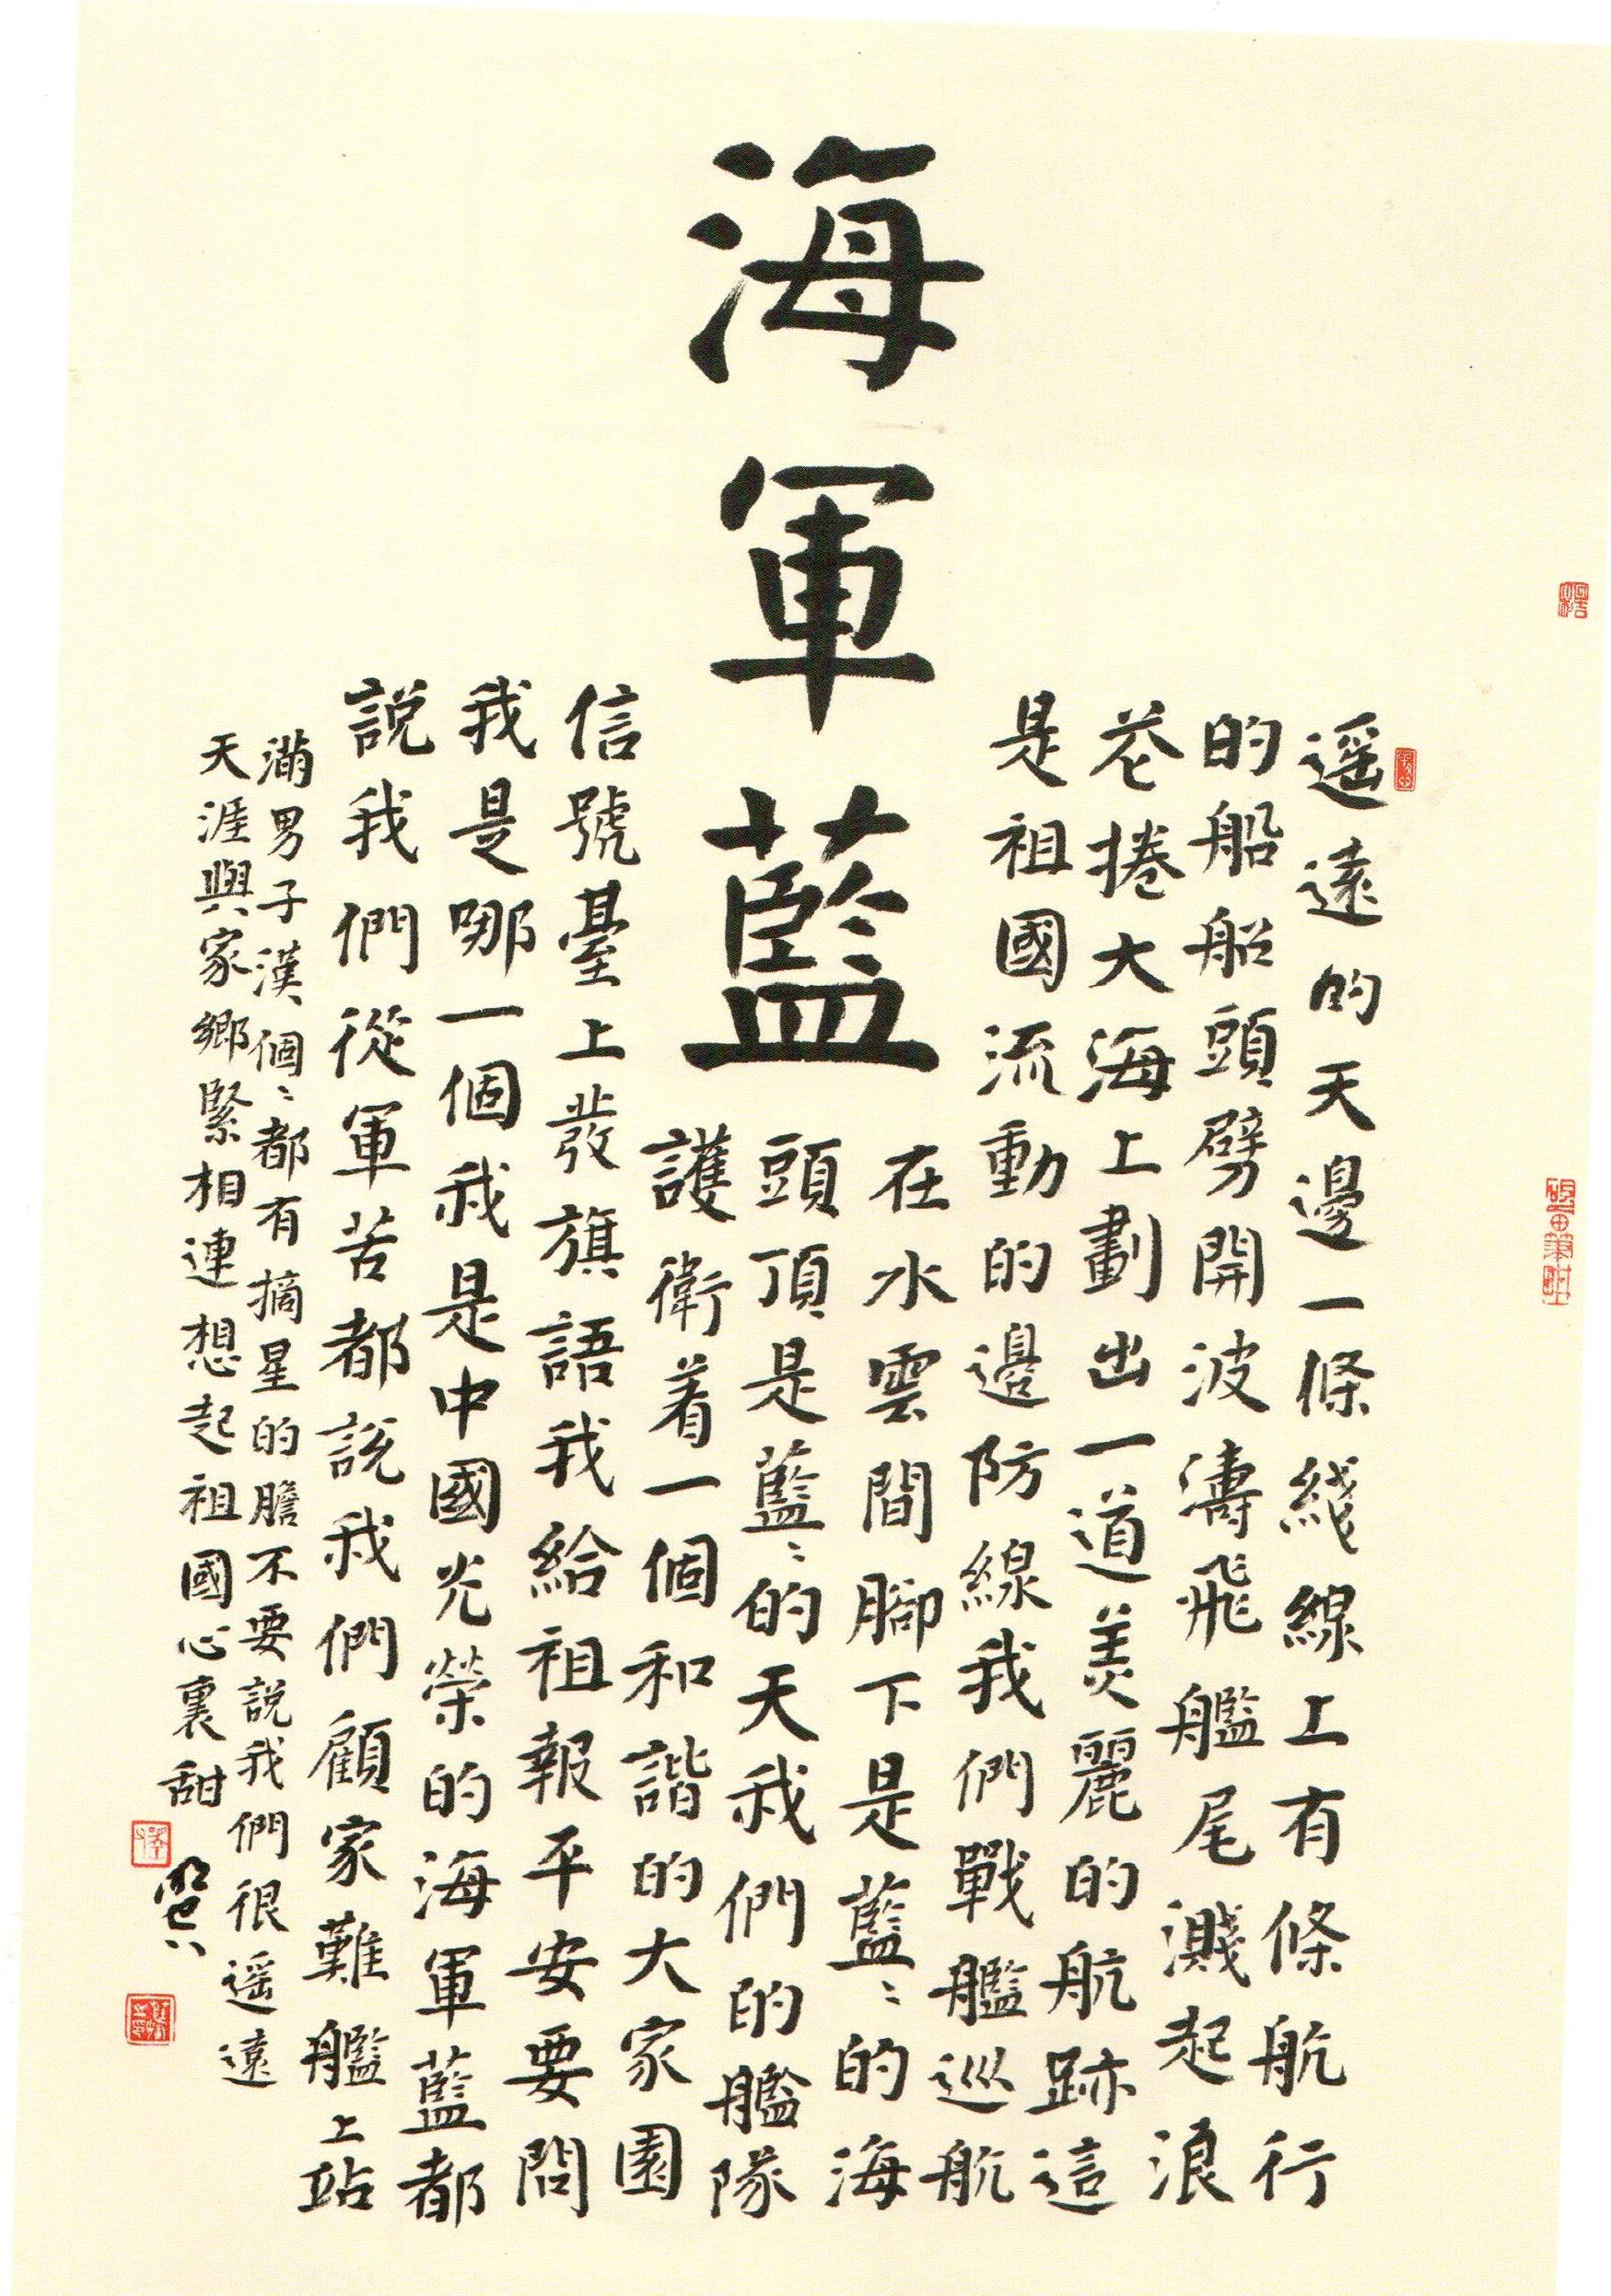 海軍藍
遥遠的天邊一條綫線上有條航行
的船船頭劈開波濤飛艦尾濺起浪
花捲大海上劃出一道美麗的航跡這
是祖國流動的邊防線我們戰艦巡航
在水雲間腳下是藍〻的海
頭頂是藍〻的天我們的艦隊
護衛着一個和諧的大家園
信號臺上發旗語我給祖報平安要問
我是哪一個我是中國光榮的海軍藍都
説我們從軍苦都説我們顧家難艦上站
滿男子漢個〻都有摘星的膽不要説我們很遥遠
天涯與家鄉緊相連想起祖國心裏甜